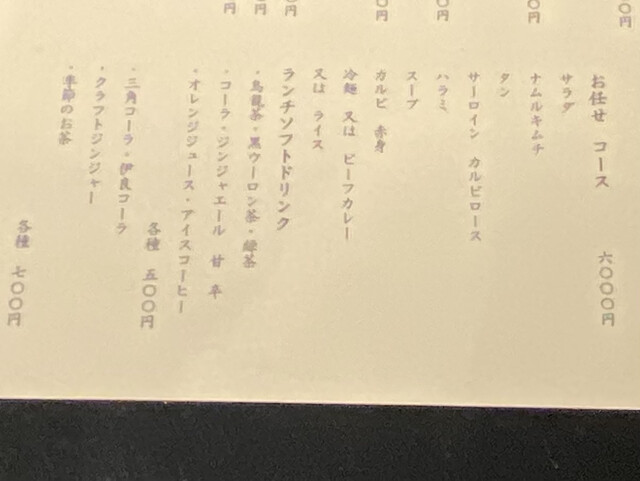 円
円
円
円
円
円
円
お任せ コース 六〇〇〇円
サラダ
ナムルキムチ
タン
サーロイン カルビロース
ハラミ
スープ
カルビ 赤身
冷麺 又は ビーフカレー
又は ライス
ランチソフトドリンク
・烏龍茶・黒ウーロン茶・緑茶
・コーラ・ジンジャエール 甘 辛
・オレンジジュース・アイスコーヒー
各種 五〇〇円
・三角コーラ・伊良コーラ
・クラフトジンジャー
・季節のお茶
各種 七〇〇円